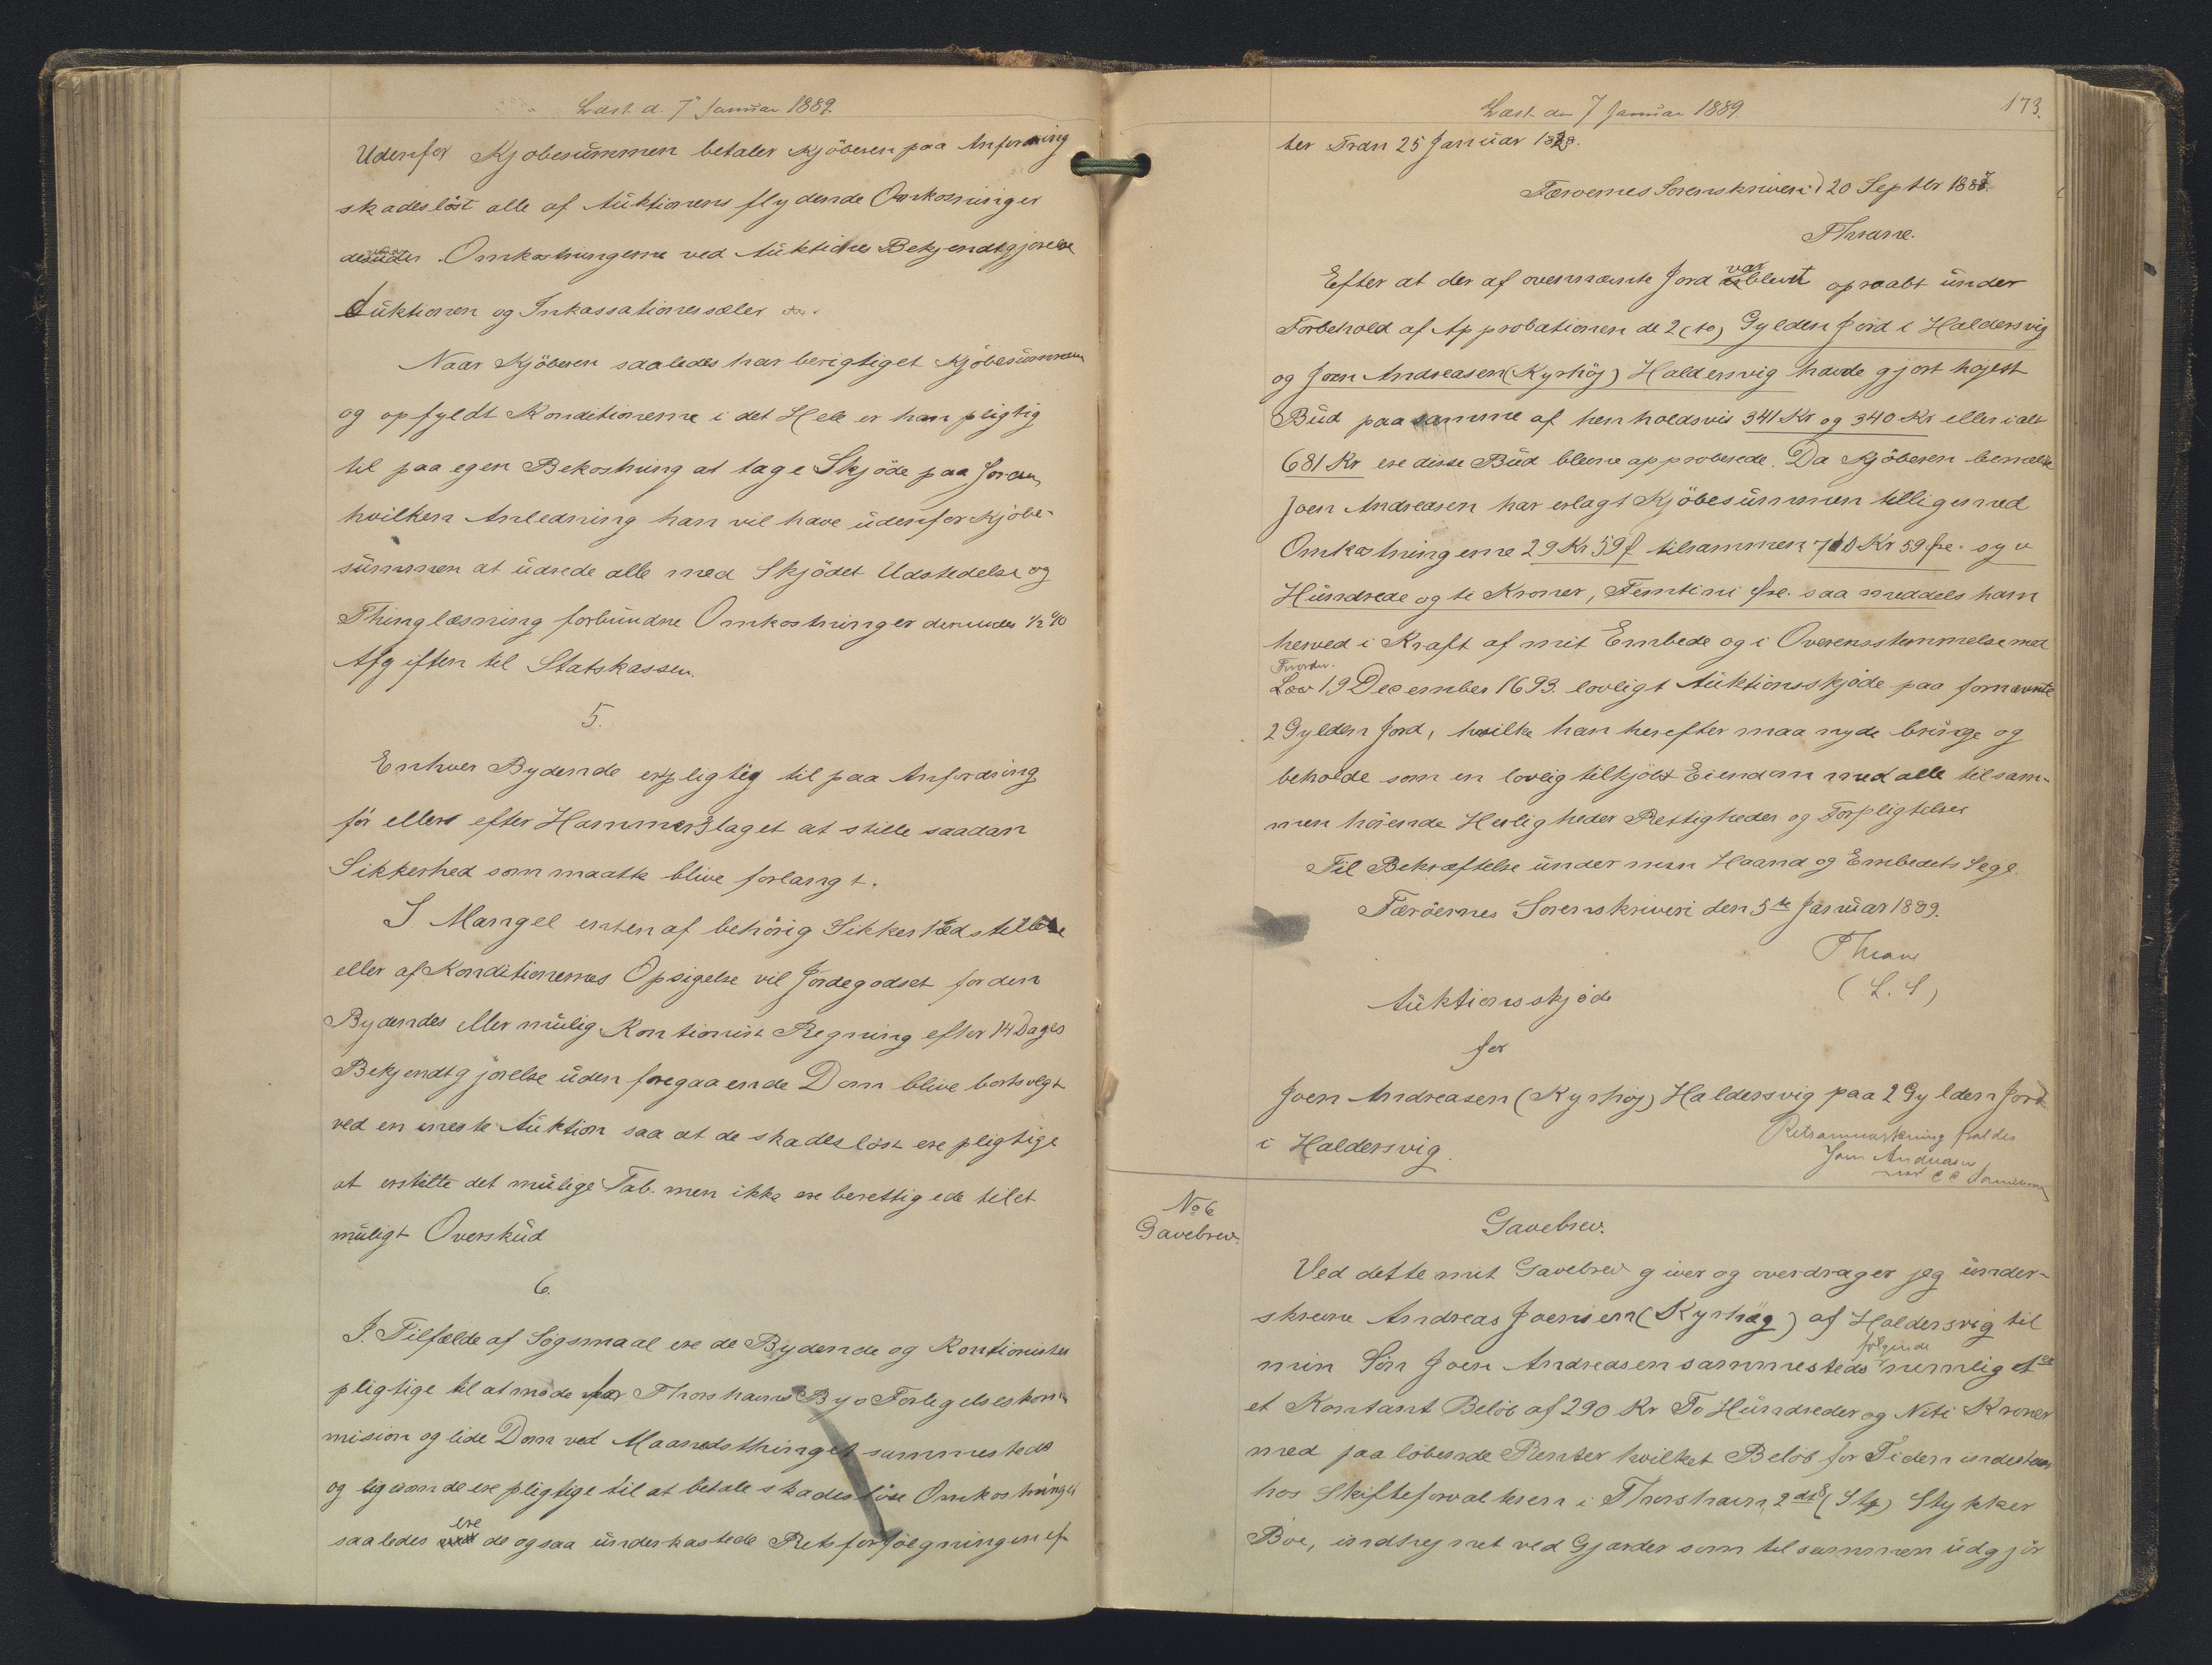 Læst d. 7 Januar 1889.
Udenfor Kjøbesummen betaler Kjöberen paa Anfordring
skadeslöst alle af Auktionens flydende Omkostninger
Omkostningerne ved Auktiones Bekjendtgjørelse
Auktionen og Inkassationssalær
Naar Kjöberen saaledes har berigtiget Kjöbesummen
og opfyldt Konditionerne i det Hele er han pligtig
til paa egen Bekostning at tage Skjöde paa Jorden
hvilken Anledning han vil have udenfor Kjøbe-
summen at udrede alle med Skjödet Udstedelse og
Thinglæsning forbundne Omkostninger derunder ½ %
Afgiften til Statskassen.
5.
Enhver Bydende er pligtig til paa Anfordring
för ellers efter Hammerslaget at stille saadan
Sikkerhed som maatte blive forlangt.
I Mangel enten af behörig Sikkerhedstillelse
eller af Konditionernes Opsigelse vil Jordegodset for den
Bydendes eller mulig Kontionist Regning efter 14 Dages
Bekjendtgjørelse uden foregaaende Dom blive bortsolgt
ved en eneste Auktion saa at de skadeslöst ere pligtige
at erstatte det mulige Tab. men ikke ere berettigede til et
muligt Overskud
6.
I. Tilfælde af Sögsmaal ere de Bydende og Kontionister
pligtige til at møde for Thorshavns Byo Forligelseskom-
mision og lide Dom ved Maanedsthinget sammesteds
og ligesom de ere pligtige til at betale skadesløse Omkostninger
saaledes ere de ogsaa underkastede Retsforfølgningen ef
Læst den 7 Januar 1889.
173.
ter Frdn 25 Januar 1828.
Færoernes Sorenskriveri d 20 Septbr 1888.
Thrane.
Efter at der af overnævnte Jord var blevet opraabt under
Forbehold af Approbationen de 2 (to) Gylden Jord i Haldersvig
og Joen Andreasen (Kyrhöj) Haldersvig havde gjort højest
Bud paa samme af henholdsvis 341 Kr og 340 Kr eller ialt
681 Kr ere disse Bud blevne approberede. Da Kjöberen bemeldte
Joen Andreasen har erlagt Kjöbesummen tilligemed
Omkostningerne 29 Kr 59 f tilsammen 710 Kr 59 Øre. syv
Hundrede og ti Kroner, Femtini Øre. saa meddels ham
herved i Kraft af mit Embede og i Overensstemmelse med
Forordn.
Lov 19 December 1693. lovligt Auktionsskjøde paa fornævnte
2 Gylden Jord, hvilke han herefter maa nyde bruge og
beholde som en lovlig tilkjöbt Eiendom med alle tilsam-
men hörende Herligheder Rettigheder og Forpligtelser
Til Bekræftelse under min Haand og Embedets Segl.
Færöernes Sorenskriveri den 5te Januar 1889.
Thrane
(L. S)
Auktionsskjøde
for
Joen Andreasen (Kyrhøj) Haldersvig paa 2 Gylden Jord
i Haldersvig.
Retsanmærkning frafaldes
Joen Andreasen
No 6
Gavebrev.
Gavebrev.
Ved dette mit Gavebrev giver og overdrager jeg under-
skrevne Andreas Joensen (Kyrhøg) af Haldersvig til
følgende
min Sön Joen Andreasen sammesteds nemlig
et Kontant Belöb af 290 Kr To Hundreder og Niti Kroner
med paalöbende Renter hvilket Belöb for Tiden indestaar
hos Skifteforvalteren i Thorshavn, 2 (Stk) Stykker
Böe, indhegnet ved Gjærder som tilsammen udgjör